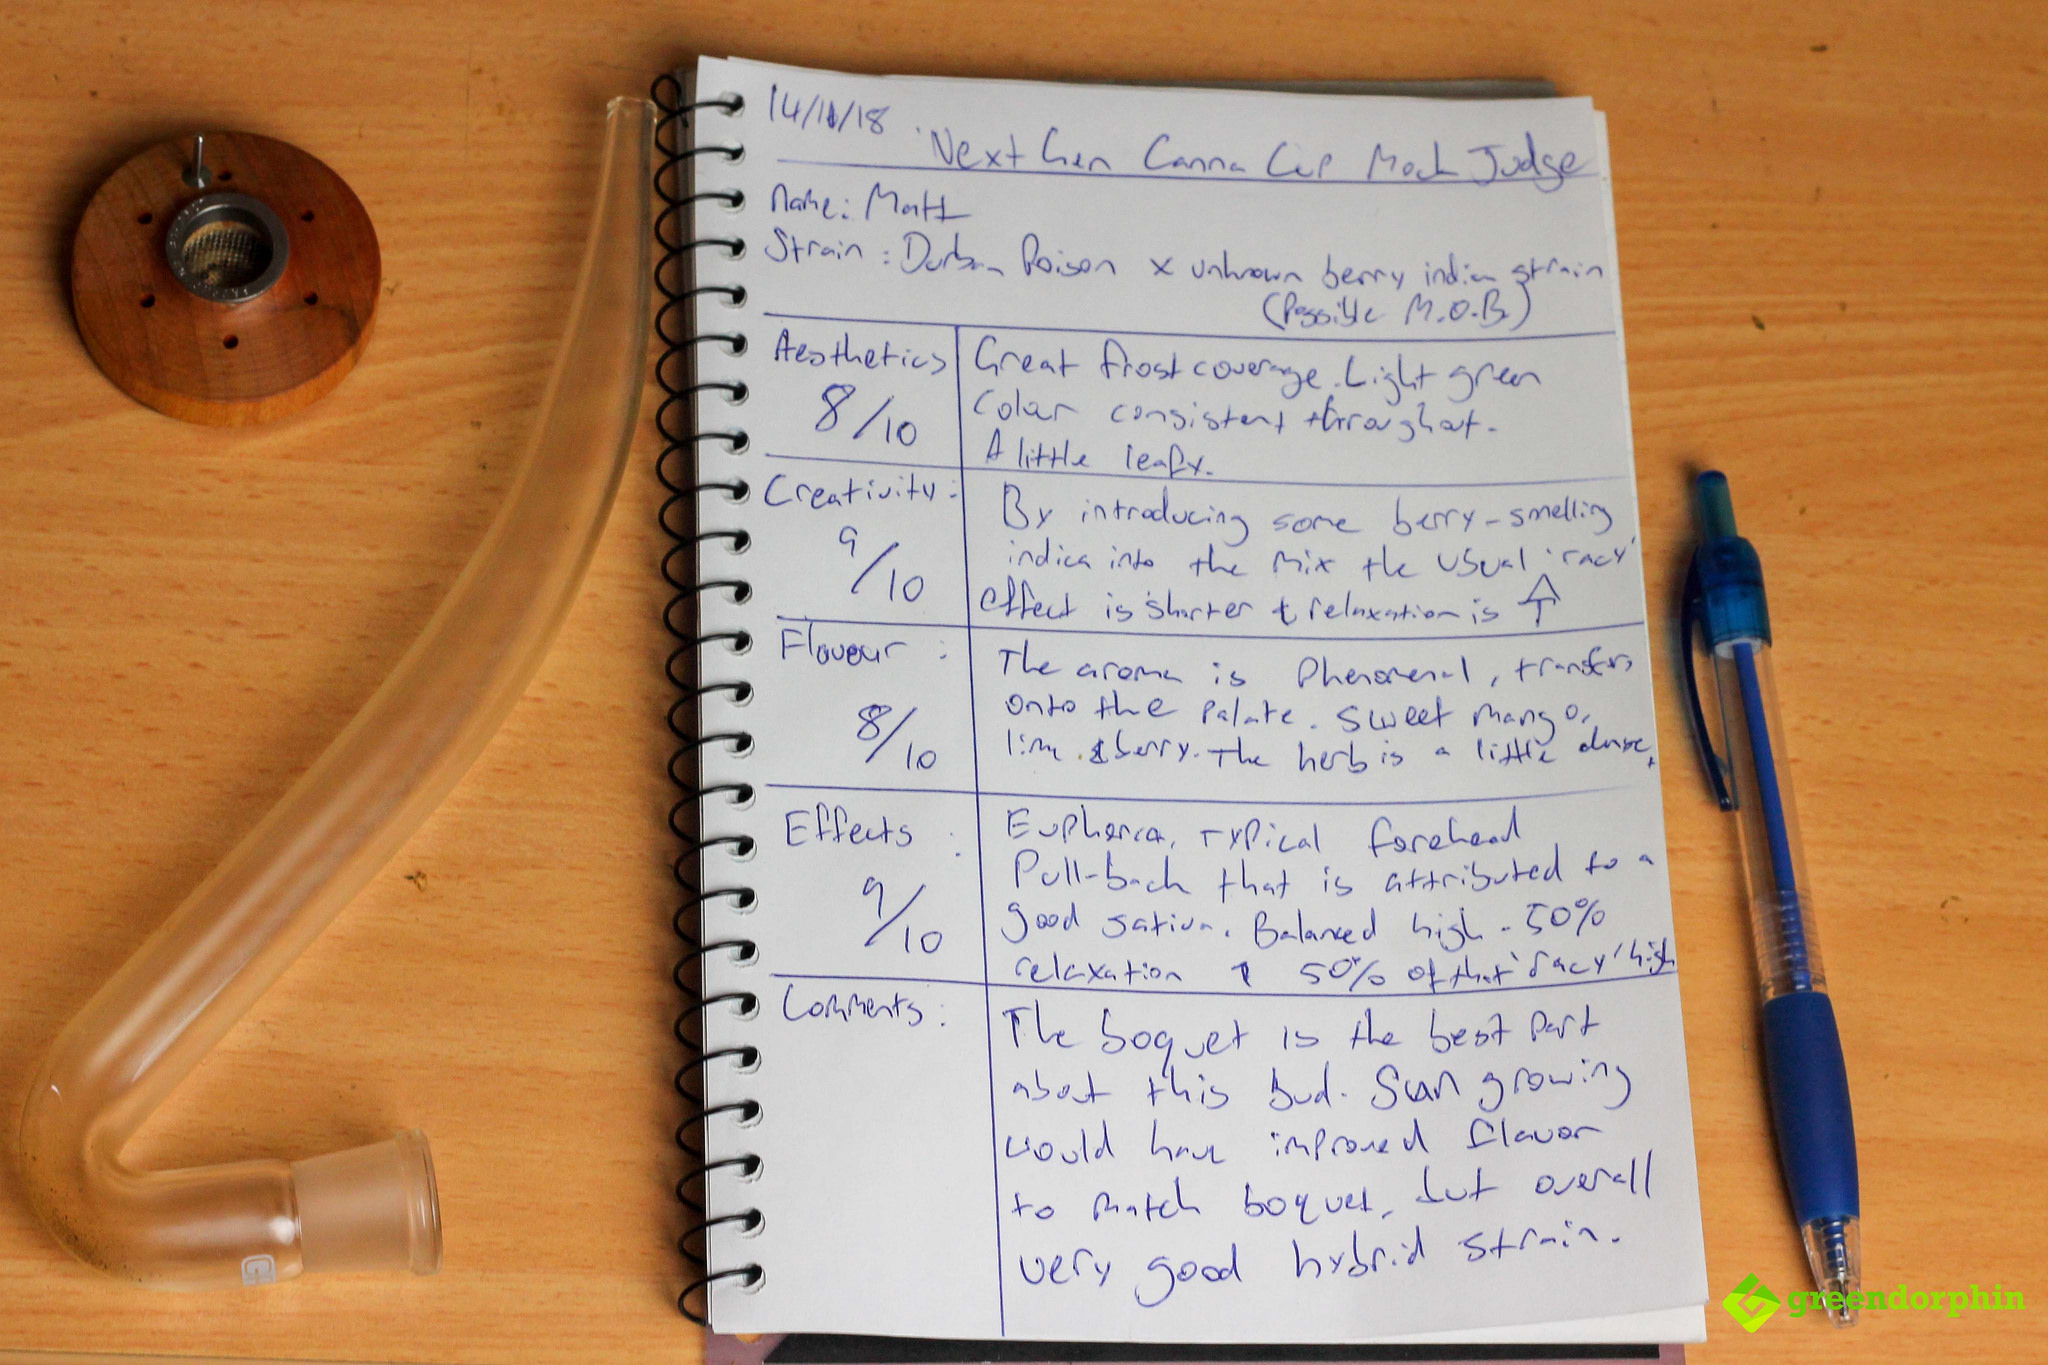 14/11/18
Next Gen Canna Cup Mock Judge
Name: Matt
Strain: Durban Poison x unknown berry indica strain
(Possible M.O.B.)
Aesthetics
8/10
Great frost coverage. Light green
colour consistent throughout.
A little leafy.
Creativity:
9/10
By introducing some berry-smelling
indica into the mix the usual 'racy'
effect is shorter & relaxation is ↑
Flavour:
8/10
The aroma is phenomenal, transfers
onto the palate. Sweet mango,
lime & berry. The herb is a little dense.
Effects:
9/10
Euphoria, typical forehead
Pull-back that is attributed to a
good sativa. Balanced high - 50%
relaxation + 50% of that 'racy' high
Comments:
The boquet is the best part
about this bud. Sun growing
would have improved flavor
to match boquet, but overall
very good hybrid strain.
greendorphin